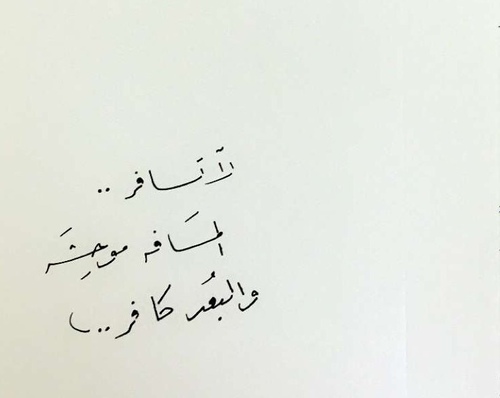 لَا تَسافر ..
المسَافه موحِشَه
والبُعد كافر ..)